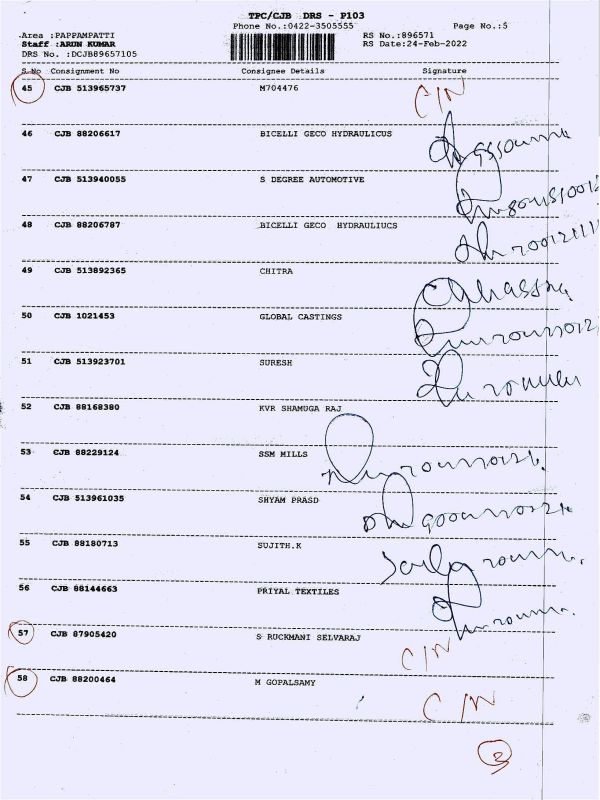 TPC/CJB DRS - P103
Phone No.:0422-3505555 Page No.:5
Area :PAPPAMPATTI RS No.:896571
Staff :ARUN KUMAR RS Date:24-Feb-2022
DRS No. :DCJB89657105
S.No Consignment No Consignee Details Signature
45 CJB 513965737 M704476 C/N
46 CJB 88206617 BICELLI GECO HYDRAULICUS
47 CJB 513940055 S DEGREE AUTOMOTIVE
48 CJB 88206787 BICELLI GECO HYDRAULIUCS
49 CJB 513892365 CHITRA
50 CJB 1021453 GLOBAL CASTINGS
51 CJB 513923701 SURESH
52 CJB 88168380 KVR SHAMUGA RAJ
53 CJB 88229124 SSM MILLS
54 CJB 513961035 SHYAM PRASD
55 CJB 88180713 SUJITH.K
56 CJB 88144663 PRIYAL TEXTILES
57 CJB 87905420 S RUCKMANI SELVARAJ C/N
58 CJB 88200464 M GOPALSAMY C/N
3